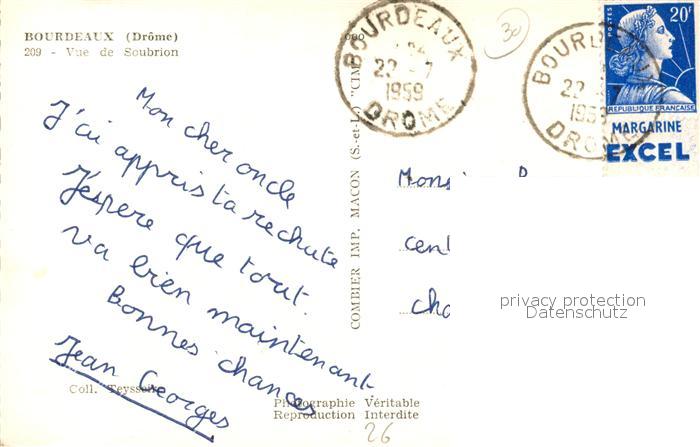 BOURDEAUX (Drôme)
209 - Vue de Soubrion
Mon cher oncle
J'ai appris ta rechute
J'espere que tout.
va bien maintenant.
Bonnes chances
Jean Georges
Coll. Teysseire
Photographie Véritable
Reproduction Interdite
26
COMBIER IMP. MACON (S.-et-L.) "CIM"
BOURDEAUX
22 - 7
1959
DROME
30
BOURDEAUX
22
1959
DROME
POSTES
20F
REPUBLIQUE FRANÇAISE
MARGARINE
EXCEL
Monsi
cent
cha
privacy protection
Datenschutz